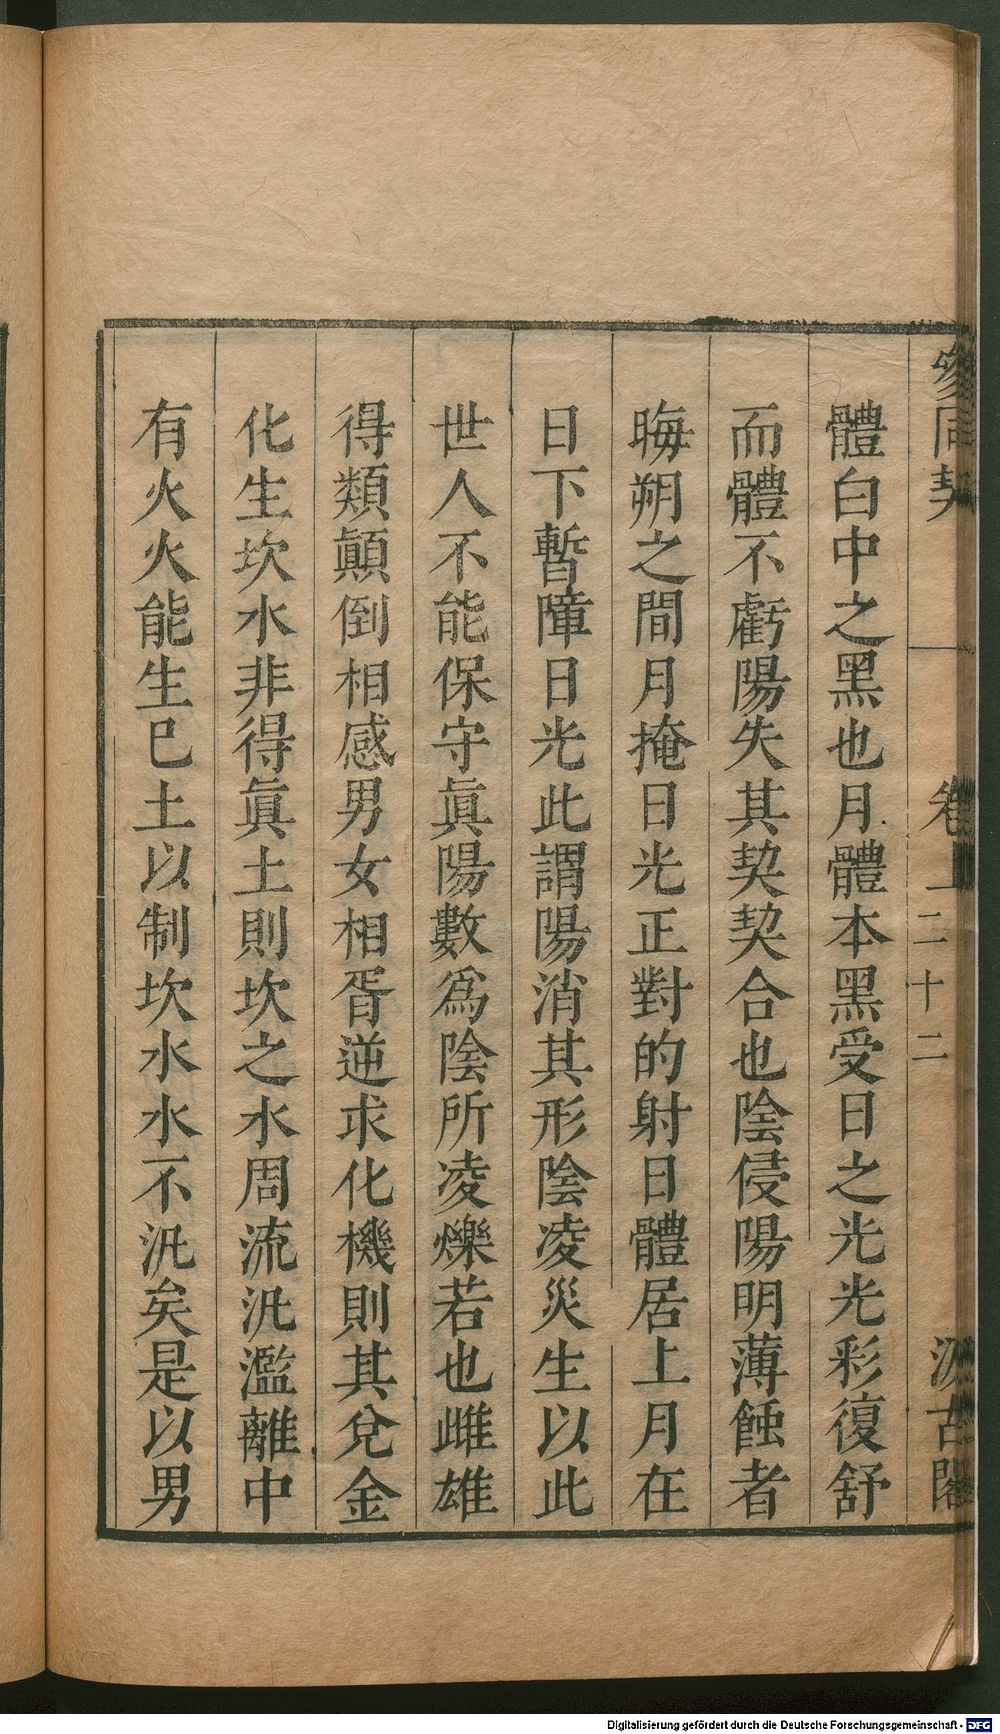 參同契 卷上 二十二 汲古閣
體白中之黑也月體本黑受日之光光彩復舒
而體不虧陽失其契契合也陰侵陽明薄蝕者
晦朔之間月掩日光正對的射日體居上月在
日下暫障日光此謂陽消其形陰凌災生以此
世人不能保守眞陽數爲陰所凌爍若也雌雄
得類顚倒相感男女相胥逆求化機則其兌金
化生坎水非得眞土則坎之水周流汎濫離中
有火火能生己土以制坎水水不汎矣是以男
Digitalisierung gefördert durch die Deutsche Forschungsgemeinschaft - DFG